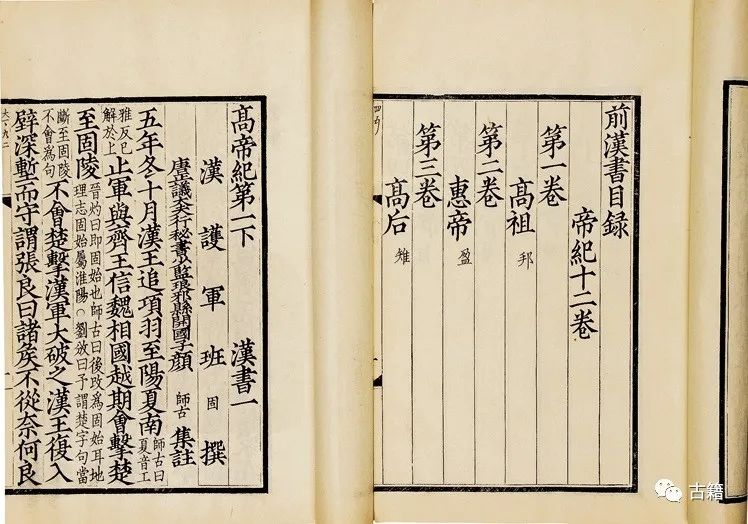 前漢書目録
帝紀十二卷
第一卷
髙祖 邦
第二卷
惠帝 盈
第三卷
髙后 雉
髙帝紀第一下 漢書一
漢護軍班固撰
唐正議大夫行秘書少監琅邪縣開國子顏師古集註
五年冬十月漢王追項羽至陽夏南師古曰夏音工
雅反已解於上止軍與齊王信魏相國越期會擊楚
至固陵晉灼曰即固始也師古曰後改為固始耳地理志固始屬淮陽○劉攽曰予謂楚字句當
斷至固陵不會為句不會楚擊漢軍大破之漢王復入
壁深塹而守謂張良曰諸矦不從奈何良
古籍